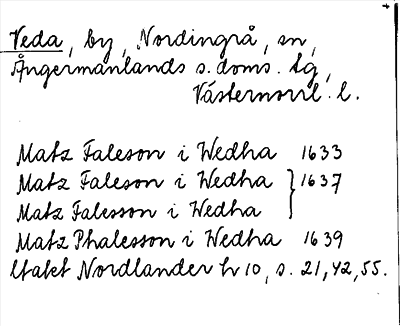 Veda, by, Nordingrå, sn,
Ångermanlands s. doms. tg,
Västernorrl. l.
Matz Faleson i Wedha 1633
Matz Faleson i Wedha } 1637
Matz Falesson i Wedha
Matz Phalesson i Wedha 1639
Nordlander h 10, s. 21, 42, 55.